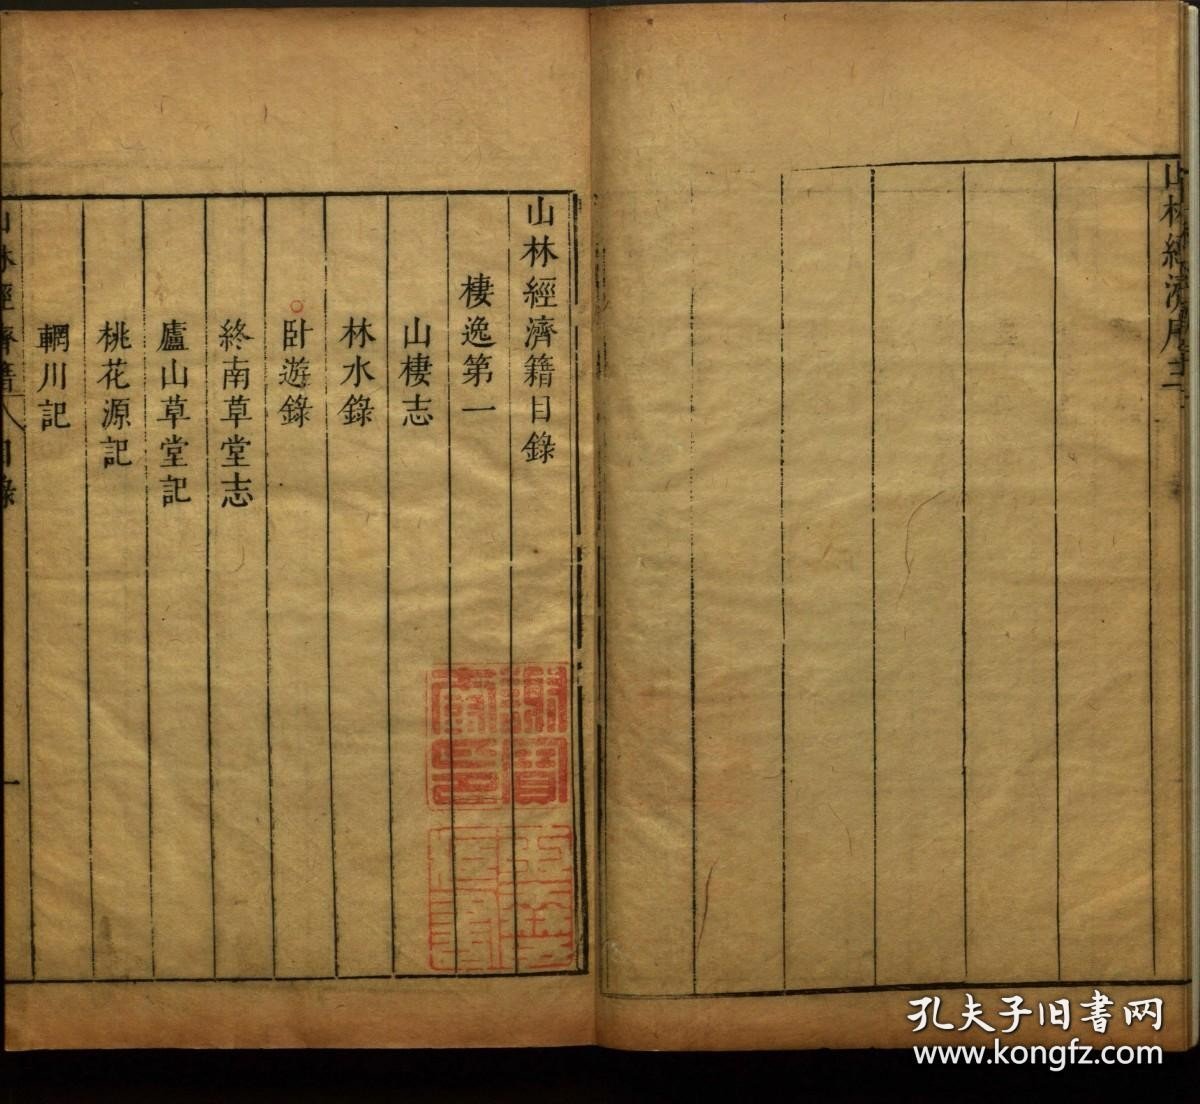 山林經濟序 三
山林經濟籍目錄
棲逸第一
山棲志
林水錄
臥遊錄
終南草堂志
廬山草堂記
桃花源記
輞川記
山林經濟籍 目錄 一
孔夫子旧书网
www.kongfz.com